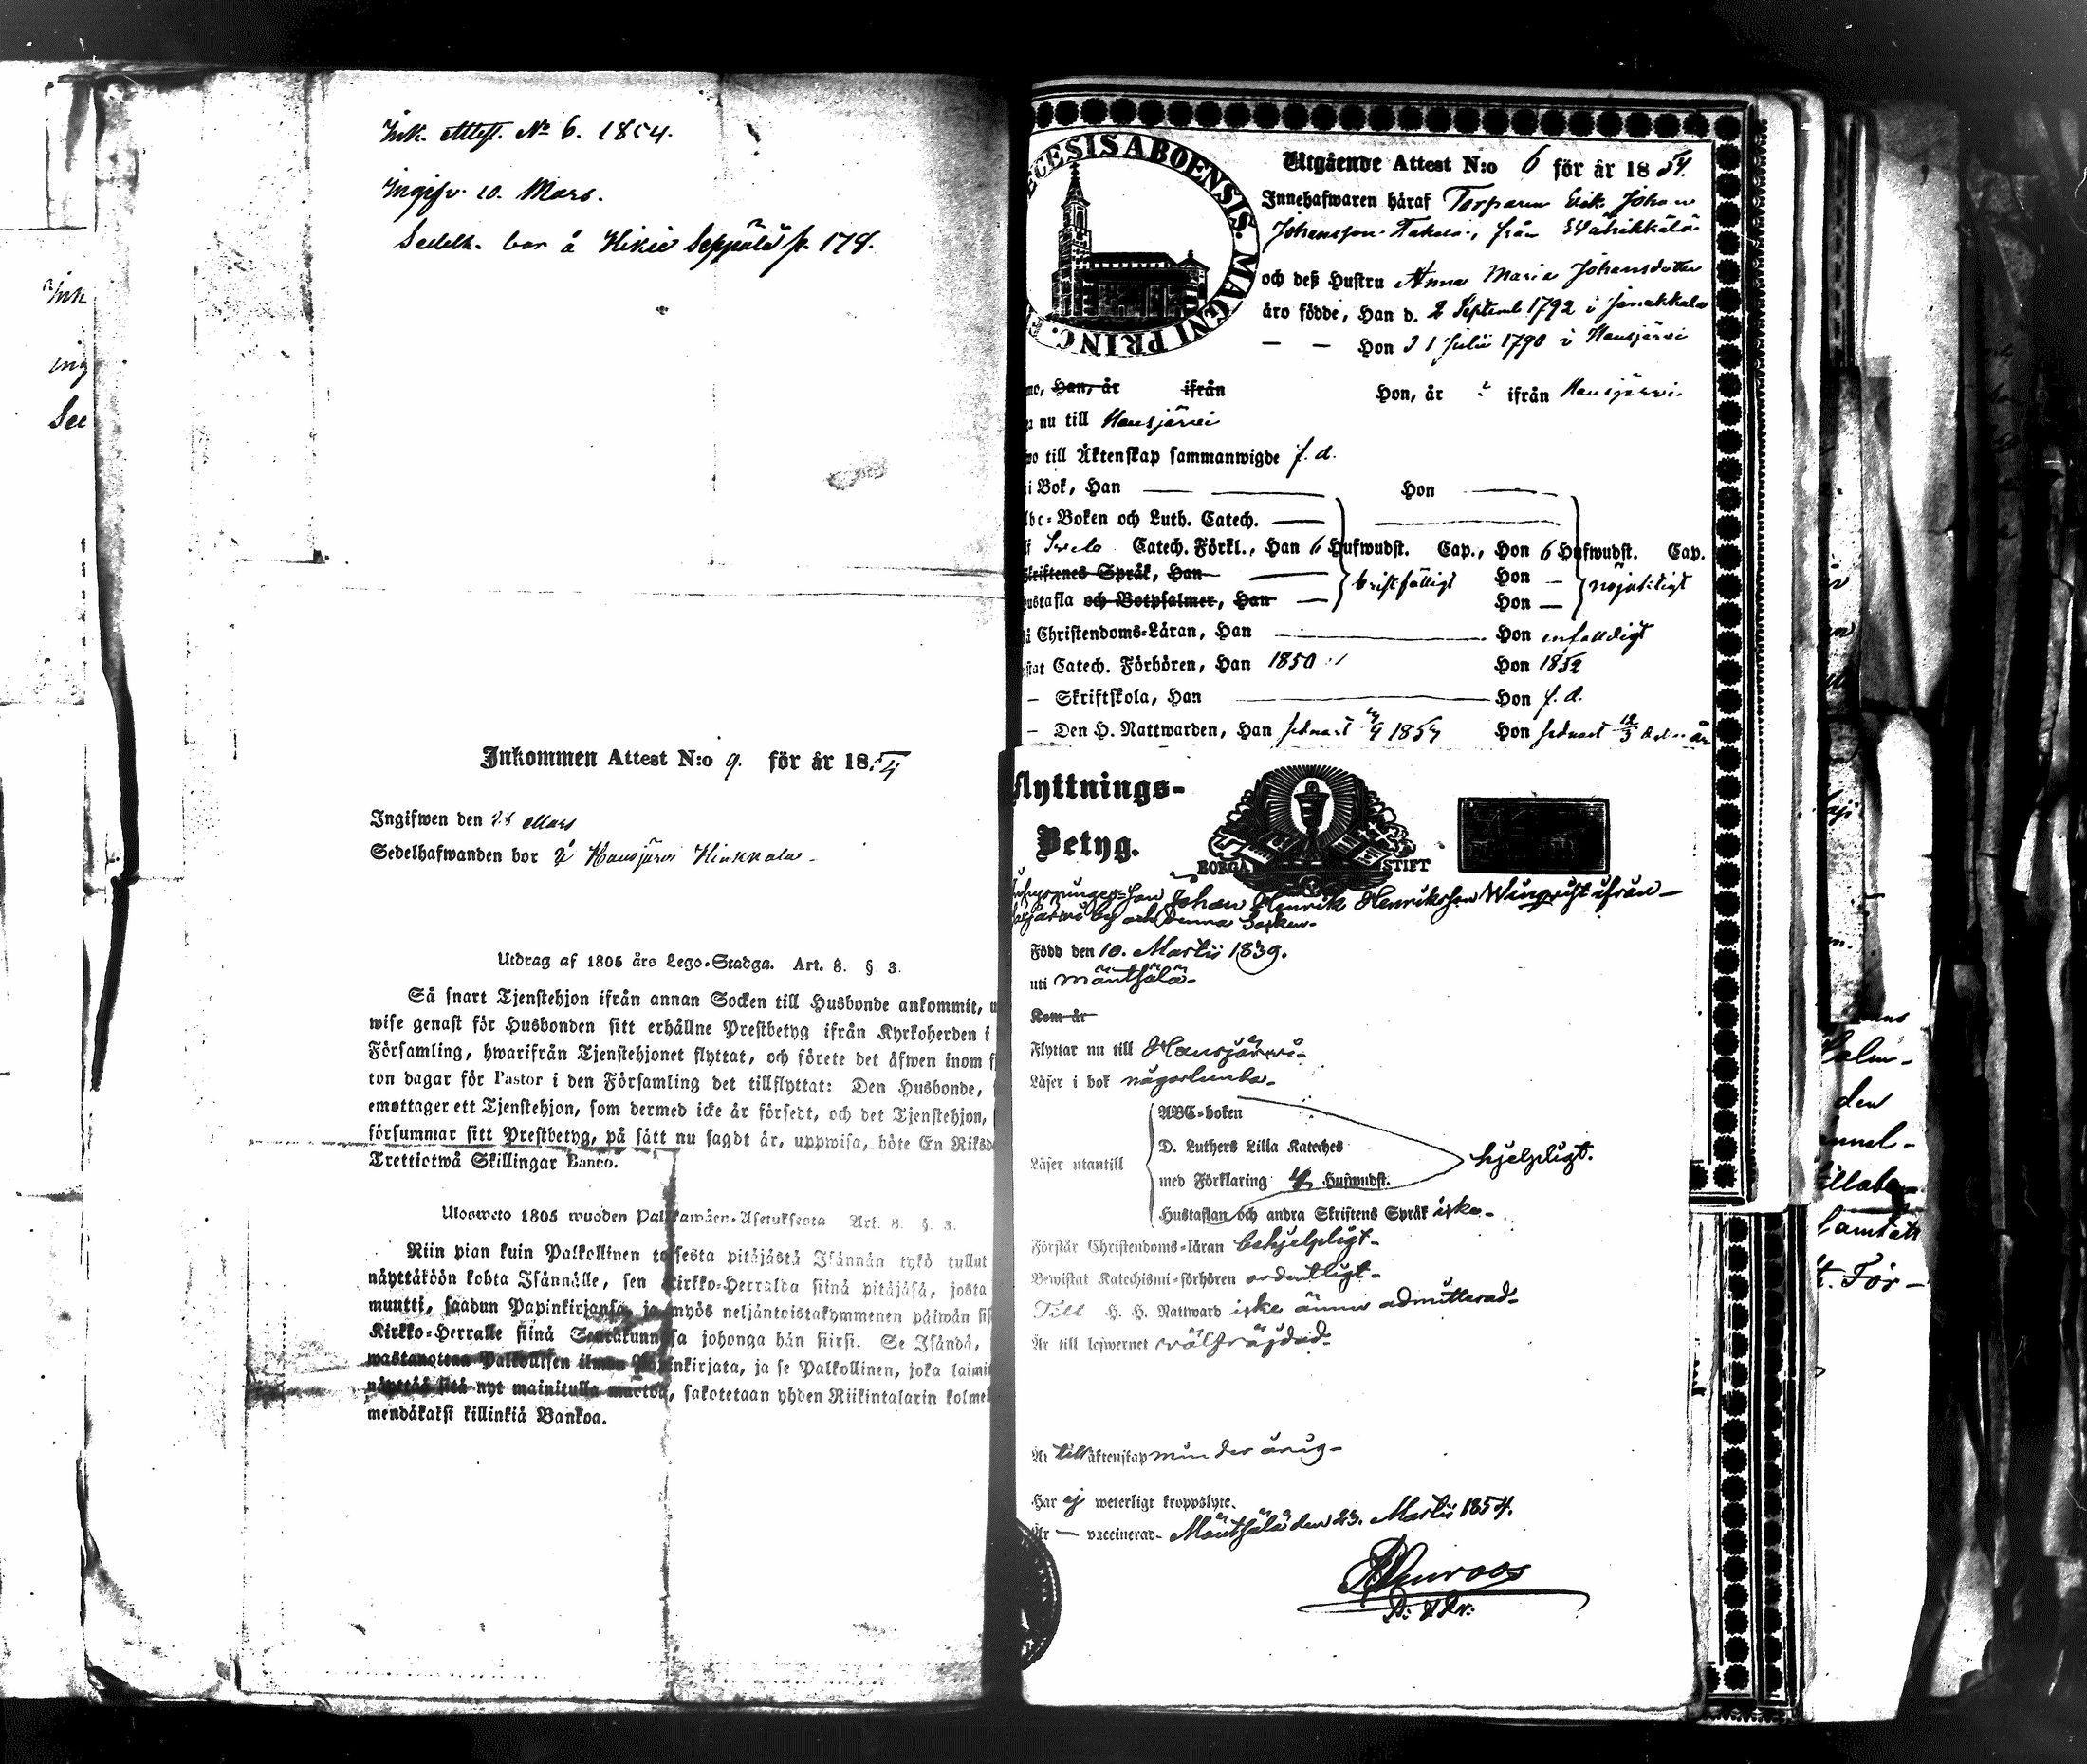 Ink. Attest. No 6. 1854.
Ingifv. 10. Mars.
Sedelh. bor å Hikiä Seppälä p. 178.
Ink
ing
Sed
Inkommen Attest N:o 9. för år 1854
Ingifwen den Mars
Sedelhafwanden bor å Hausjärvi Hinkkala
Utdrag af 1805 års Lego-Stadga. Art. 8. § 3.
Så snart Tjenstehjon ifrån annan Socken till Husbonde ankommit, u
wise genast för Husbonden sitt erhållne Prestbetyg ifrån Kyrkoherden i
Församling, hwarifrån Tjenstehjonet flyttat, och förete det äfwen inom f
ton dagar för Pastor i den Församling det tillflyttat: Den Husbonde,
emottager ett Tjenstehjon, som dermed icke är försedt, och det Tjenstehjon,
försummar sitt Prestbetyg, på sätt nu sagdt är, uppwisa, böte En Riksd
Trettiotwå Skillingar Banco.
Ulosweto 1805 wuoden Palkkawäen-Asetuksesta Art. 8. §. 3.
Niin pian kuin Palkollinen toisesta pitäjästä Isännän tykö tullut
näyttäköön kohta Isännälle, sen Kirkko-Herralda siinä pitäjäsä, josta
muutti, saadun Papinkirjansa, ja myös neljäntoistakymmenen päiwän sis
Kirkko-Herralle siinä Seurakunnasa johonga hän siirsi. Se Isändä,
wastanottaa Palkollisen ilman Papinkirjata, ja se Palkollinen, joka laimi
näyttää sitä nyt mainitulla muotoa, sakotetaan yhden Riikintalarin kolme
mendäkaksi killinkiä Bankoa.
ECESIS ABOENSIS. MAGNI PRINC. F
Utgående Attest N:o 6 för år 1854.
Innehafwaren häraf Torparen Erik Johan
Johansson från Wähikkälä
och deß Hustru Anna Maria Johansdotter
äro födde, Han d. 2 Septemb 1792 i Janakkala
— — Hon 21 Julii 1790 i Hausjärvi
mo, Han, år ifrån Hon, år ifrån Hausjärvi.
a nu till Hausjärvi
wo till Äktenskap sammanwigde f. d.
i Bok, Han — — Hon —
Abc-Boken och Luth. Catech. —
Svebi Catech. Förkl., Han 6 Hufwudst. Cap., Hon 6 Hufwudst. Cap.
Skriftenes Språk, Han — bristfälligt Hon — nöjaktigt
Hustafla och Botpsalmer, Han — Hon —
Christendoms-Läran, Han — Hon enfaldigt
istat Catech. Förhören, Han 1850 Hon 1852
— Skriftskola, Han — Hon f. d.
— Den H. Nattwarden, Han sednast 1854 Hon sednast
Flyttnings-
Betyg.
BORGÅ STIFT
Johan Henrik Henriksson Wingqvist ifrån
by och denna Socken.
Född den 10. Martii 1839.
uti Mäntsälä.
Kom år
Flyttar nu till Hausjärvi.
Läser i bok någorlunda.
ABC-boken
D. Luthers Lilla Kateches
Läser utantill hjelpligt.
med Förklaring 4 Hufwudst.
Hustaflan och andra Skriftens Språk icke.
Förstår Christendoms-läran behjelpligt.
Bewistat Katechismi-förhören ordentligt.
Till H. H. Nattward icke ännu admitterad.
Är till lefwernet välfräjdad.
Är till äktenskap minderårig.
Har ej weterligt kroppslyte.
Är — vaccinerad. Mäntsälä den 23. Martii 1854.
den